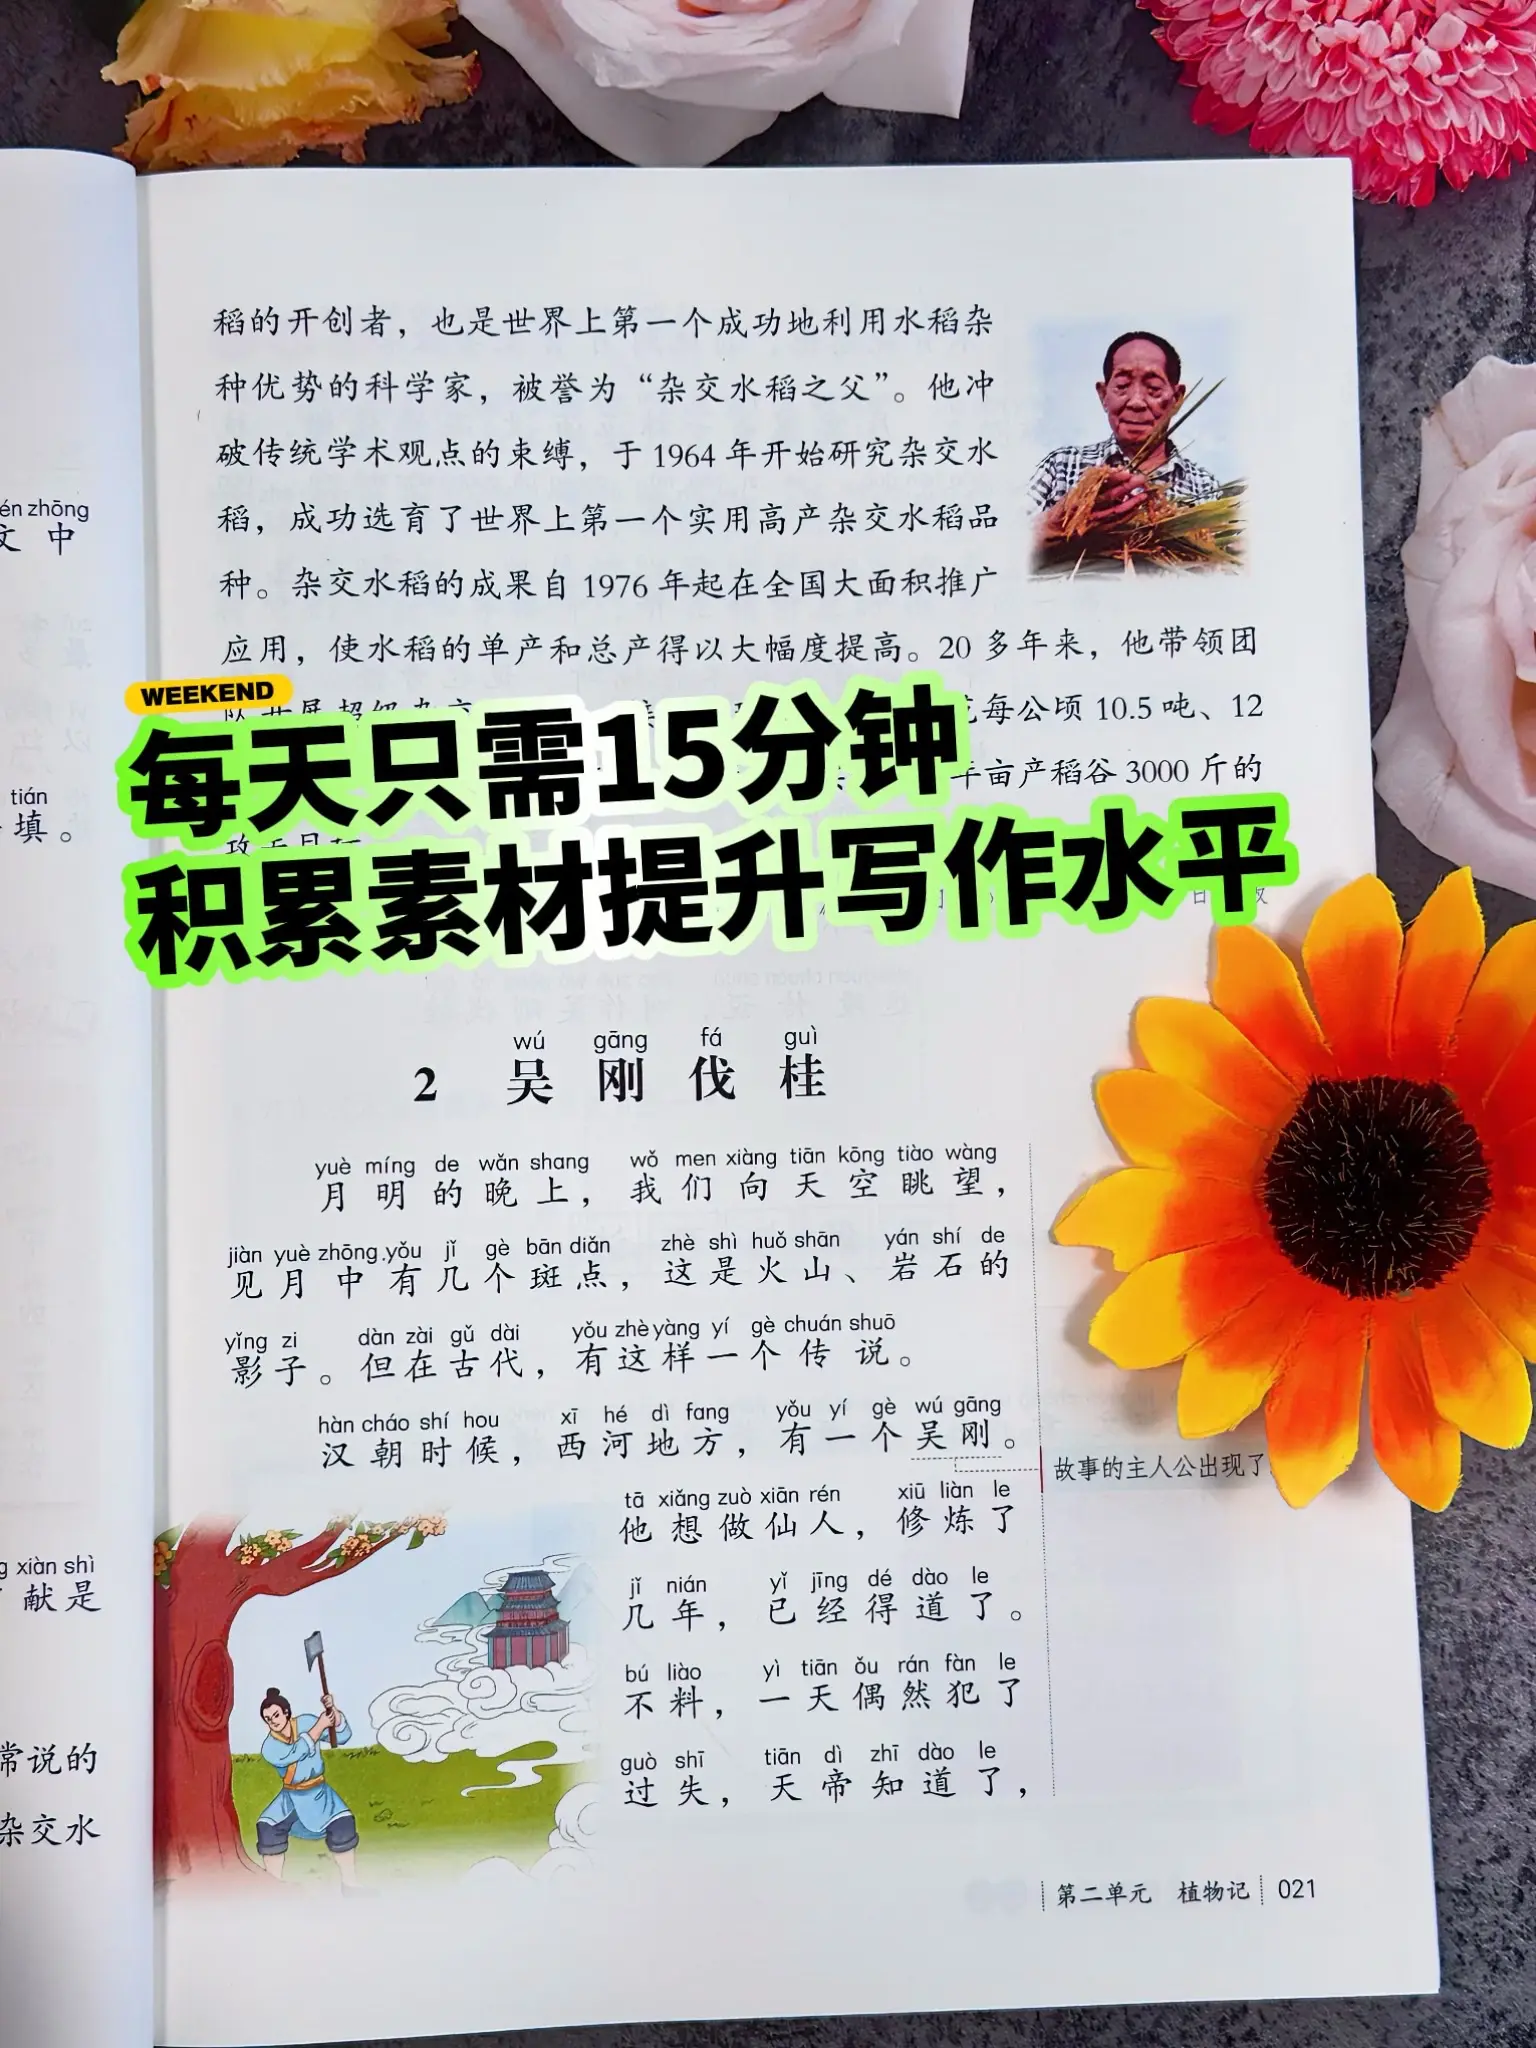 稻的开创者，也是世界上第一个成功地利用水稻杂
种优势的科学家，被誉为“杂交水稻之父”。他冲
破传统学术观点的束缚，于1964年开始研究杂交水
稻，成功选育了世界上第一个实用高产杂交水稻品
种。杂交水稻的成果自1976年起在全国大面积推广
应用，使水稻的单产和总产得以大幅度提高。20多年来，他带领团
每公顷10.5吨、12
年亩产稻谷3000斤的
WEEKEND
每天只需15分钟
积累素材提升写作水平
zhōng
文中
tián
填。
xiàn shì
献是
常说的
杂交水
wú gāng fá guì
2 吴刚伐桂
yuè míng de wǎn shang wǒ men xiàng tiān kōng tiào wàng
月明的晚上，我们向天空眺望，
jiàn yuè zhōng yǒu jǐ gè bān diǎn zhè shì huǒ shān yán shí de
见月中有几个斑点，这是火山、岩石的
yǐng zi dàn zài gǔ dài yǒu zhè yàng yí gè chuán shuō
影子。但在古代，有这样一个传说。
hàn cháo shí hou xī hé dì fang yǒu yí gè wú gāng
汉朝时候，西河地方，有一个吴刚。
故事的主人公出现了
tā xiǎng zuò xiān rén xiū liàn le
他想做仙人，修炼了
jǐ nián yǐ jīng dé dào le
几年，已经得道了。
bú liào yì tiān ǒu rán fàn le
不料，一天偶然犯了
guò shī tiān dì zhī dào le
过失，天帝知道了，
第二单元 植物记 021